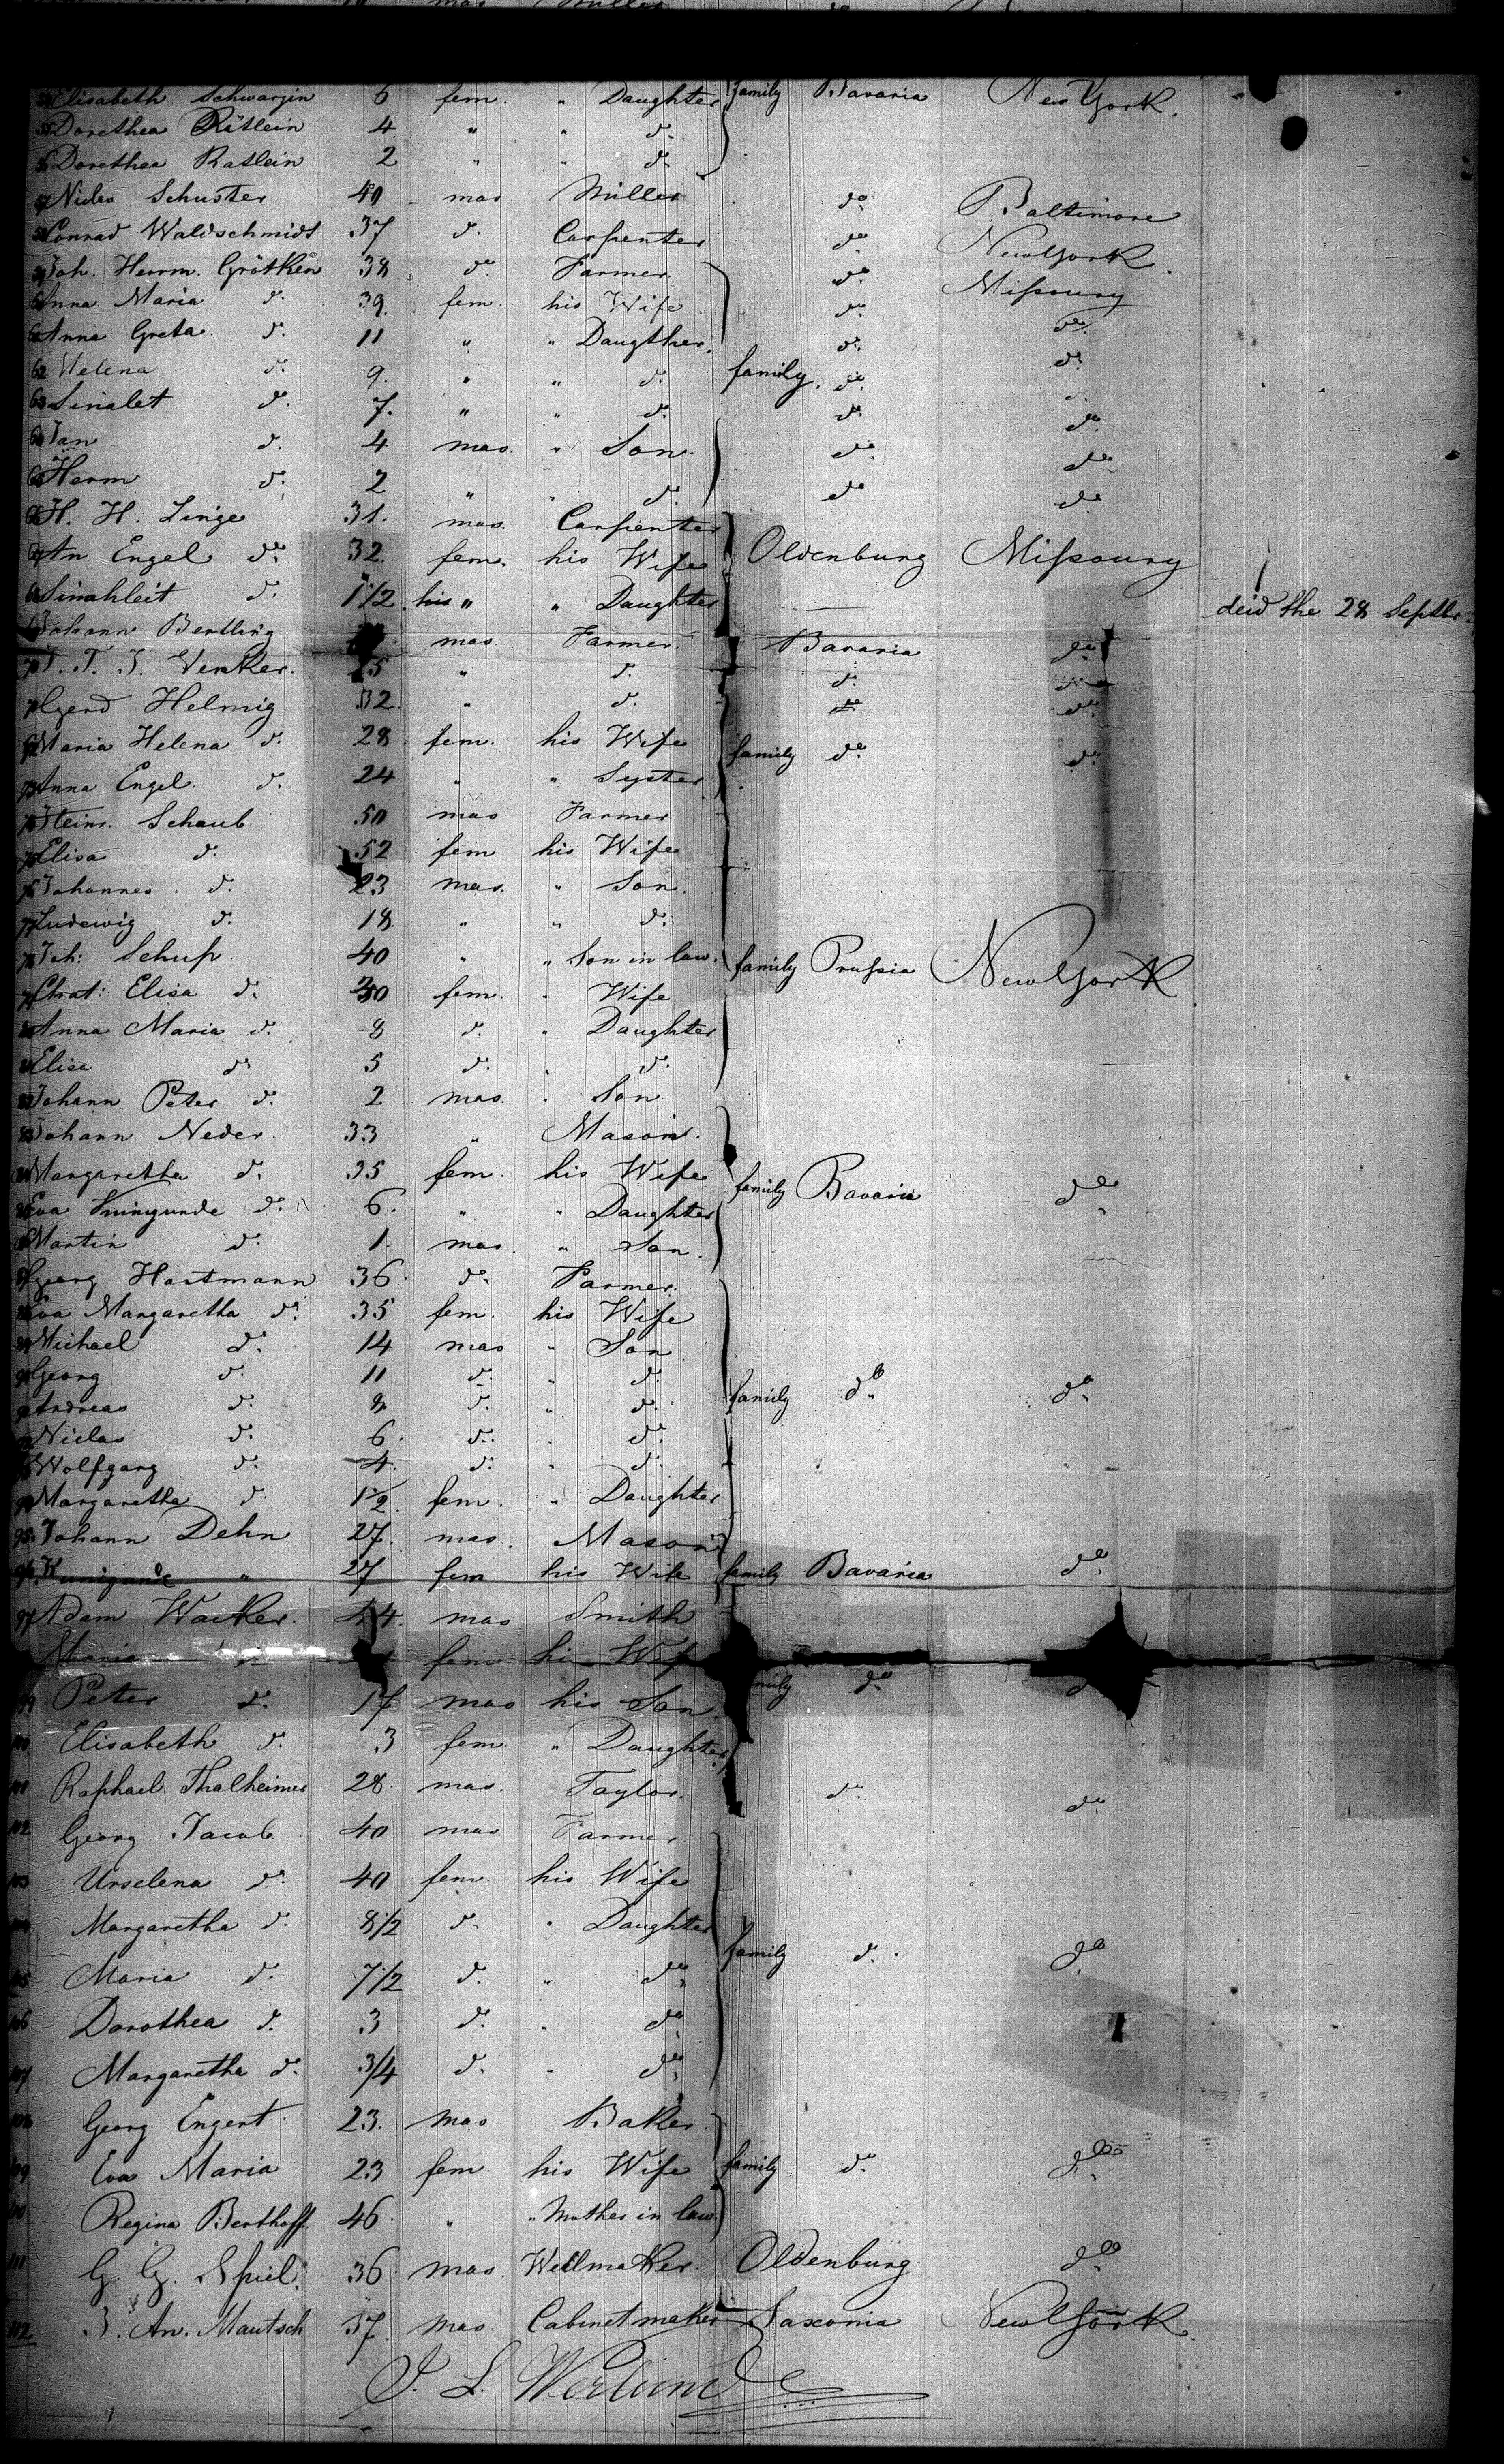 54 Elisabeth Schwarzin 6 fem. " Daughter family Bavaria New York.
55 Dorethea Rätlein 4 " " do.
56 Dorethea Ratlein 2 " " do.
57 Niclas Schuster 40 mas Miller do. Baltimore
58 Conrad Waldschmidt 37 do. Carpenter do. New York.
59 Joh. Herrm. Grötken 38 do. Farmer. do. Missoury
60 Anna Maria do. 39. fem. his Wife do. do.
61 Anna Greta do. 11 " " Daugther. do. do.
62 Helena do. 9. " " do. family. do.
63 Sinalet do. 7. " " do. do. do.
64 Jan do. 4 mas. " Son. do. do.
65 Herm do. 2 " " do. do. do.
66 H. H. Linge 31. mas. Carpenter
67 An Engel do. 32. fem. his Wife Oldenburg Missoury
68 Sinahleit do. 1 1/2 his " " Daughter deid the 28 Septbr.
69 Johann Bertling mas. Farmer. Bavaria do.
70 Venker. 25 " do. do. do.
71 Gerd Helmig 32. " do. do. do.
72 Maria Helena do. 28 fem. his Wife family do. do.
73 Anna Engel. do. 24 " " Syster
74 Heinr. Schaub 50 mas Farmer
75 Elisa do. 52 fem his Wife
76 Johannes do. 23 mas. " Son.
77 Ludewig do. 18 " " do.
78 Joh: Schup. 40 " " Son in law. family Prussia New York
79 Chat: Elisa do. 30 fem. " Wife
80 Anna Maria do. 8 do. " Daughter
81 Elisa do 5 do. " do.
82 Johann Peter do. 2 mas. " Son
83 Johann Neder. 33 " Mason.
84 Margaretha do. 35 fem. his Wife family Bavaria do.
85 Eva Kuningunde do. 6. " " Daughter
86 Martin do. 1. mas. " Son.
87 Georg Hartmann 36 do. Farmer.
88 Eva Margaretha do. 35 fem. his Wife
89 Michael do. 14 mas " Son
90 Georg do. 11 do. " do.
91 Andreas do. 8 do. " do. family do. do.
92 Niclas do. 6 do. " do.
93 Wolfgang do. 4 do. " do.
94 Margaretha do 1 1/2. fem. " Daughter
95. Johann Dehn 27. mas. Mason
96. Kunigunde " 27 fem his Wife family Bavaria do.
97 Adam Wacker. mas Smith
Maria fem his Wife
99 Peter do. 17 mas his Son. family do.
100 Elisabeth do. 3 fem " Daughter
101 Raphael Thalheimer 28. mas. Taylor. do. do.
102 Georg Jacob 40 mas Farmer.
103 Urselena do. 40 fem. his Wife
104 Margaretha do. 8 1/2 do. " Daughter family do. do.
105 Maria do. 7 1/2 do. " do.
106 Dorothea do. 3 do. " do.
107 Margaretha do. 3/4 do. " do.
108 Georg Engert 23. mas Baker.
109 Eva Maria 23 fem his Wife family do. do.
110 Regina Berthoff. 46. " " Mother in law.
111 G. G. Spiel. 36. mas. Wellmaker. Oldenburg do.
112 J. An. Mautsch 37. mas. Cabinetmaker Saxonia New York.